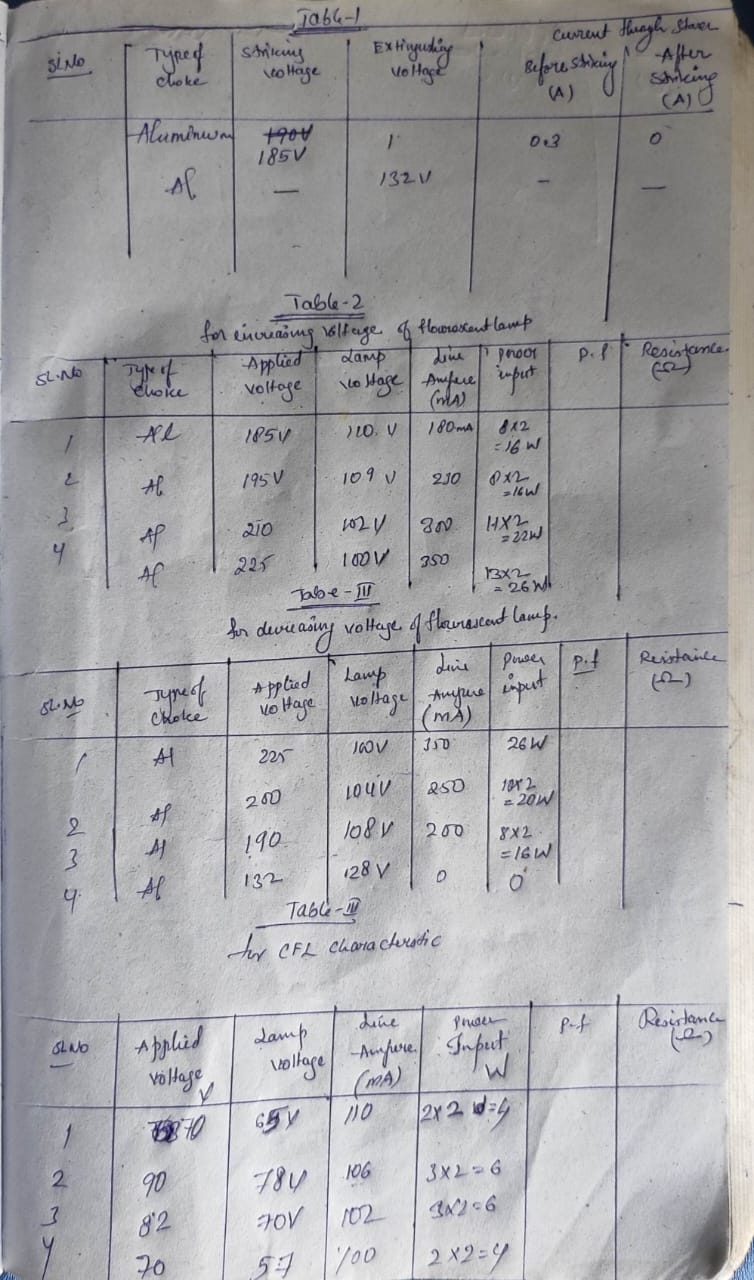 Table-1
Sl.No | Type of choke | Striking voltage | Extinguding voltage | Current though Starer Before striking (A) | After striking (A)
Aluminium | 190V 185V | 1 | 0.3 | 0
Al | — | 132V | — | —
Table-2
for increasing voltage of flourescent lamp
SL.No | Type of choke | Applied voltage | Lamp voltage | Line Ampere (mA) | power input | p.f | Resistance (Ω)
1 | Al | 185V | 110. V | 180mA | 8x2 = 16W
2 | Al | 195V | 109 V | 230 | 8x2 = 16W
3 | Al | 210 | 102V | 300 | 11x2 = 22W
4 | Al | 225 | 100V | 350 | 13x2 = 26W
Table-III
for decreasing voltage of flourescent lamp.
SL.No | Type of choke | Applied voltage | Lamp voltage | Line Ampere (mA) | Power input | p.f | Resistance (Ω)
1 | Al | 225 | 100V | 350 | 26W
2 | Al | 200 | 104V | 250 | 10x2 = 20W
3 | Al | 190 | 108V | 200 | 8x2 = 16W
4. | Al | 132 | 128V | 0 | 0
Table-III
for CFL characteristic
SL.No | Applied voltage V | Lamp voltage | Line Ampere (mA) | Power Input W | P.f | Resistance (Ω)
1 | 70 | 65V | 110 | 2x2 = 4
2 | 90 | 78V | 106 | 3x2 = 6
3 | 82 | 70V | 102 | 3x2 = 6
4 | 70 | 57 | 100 | 2x2 = 4